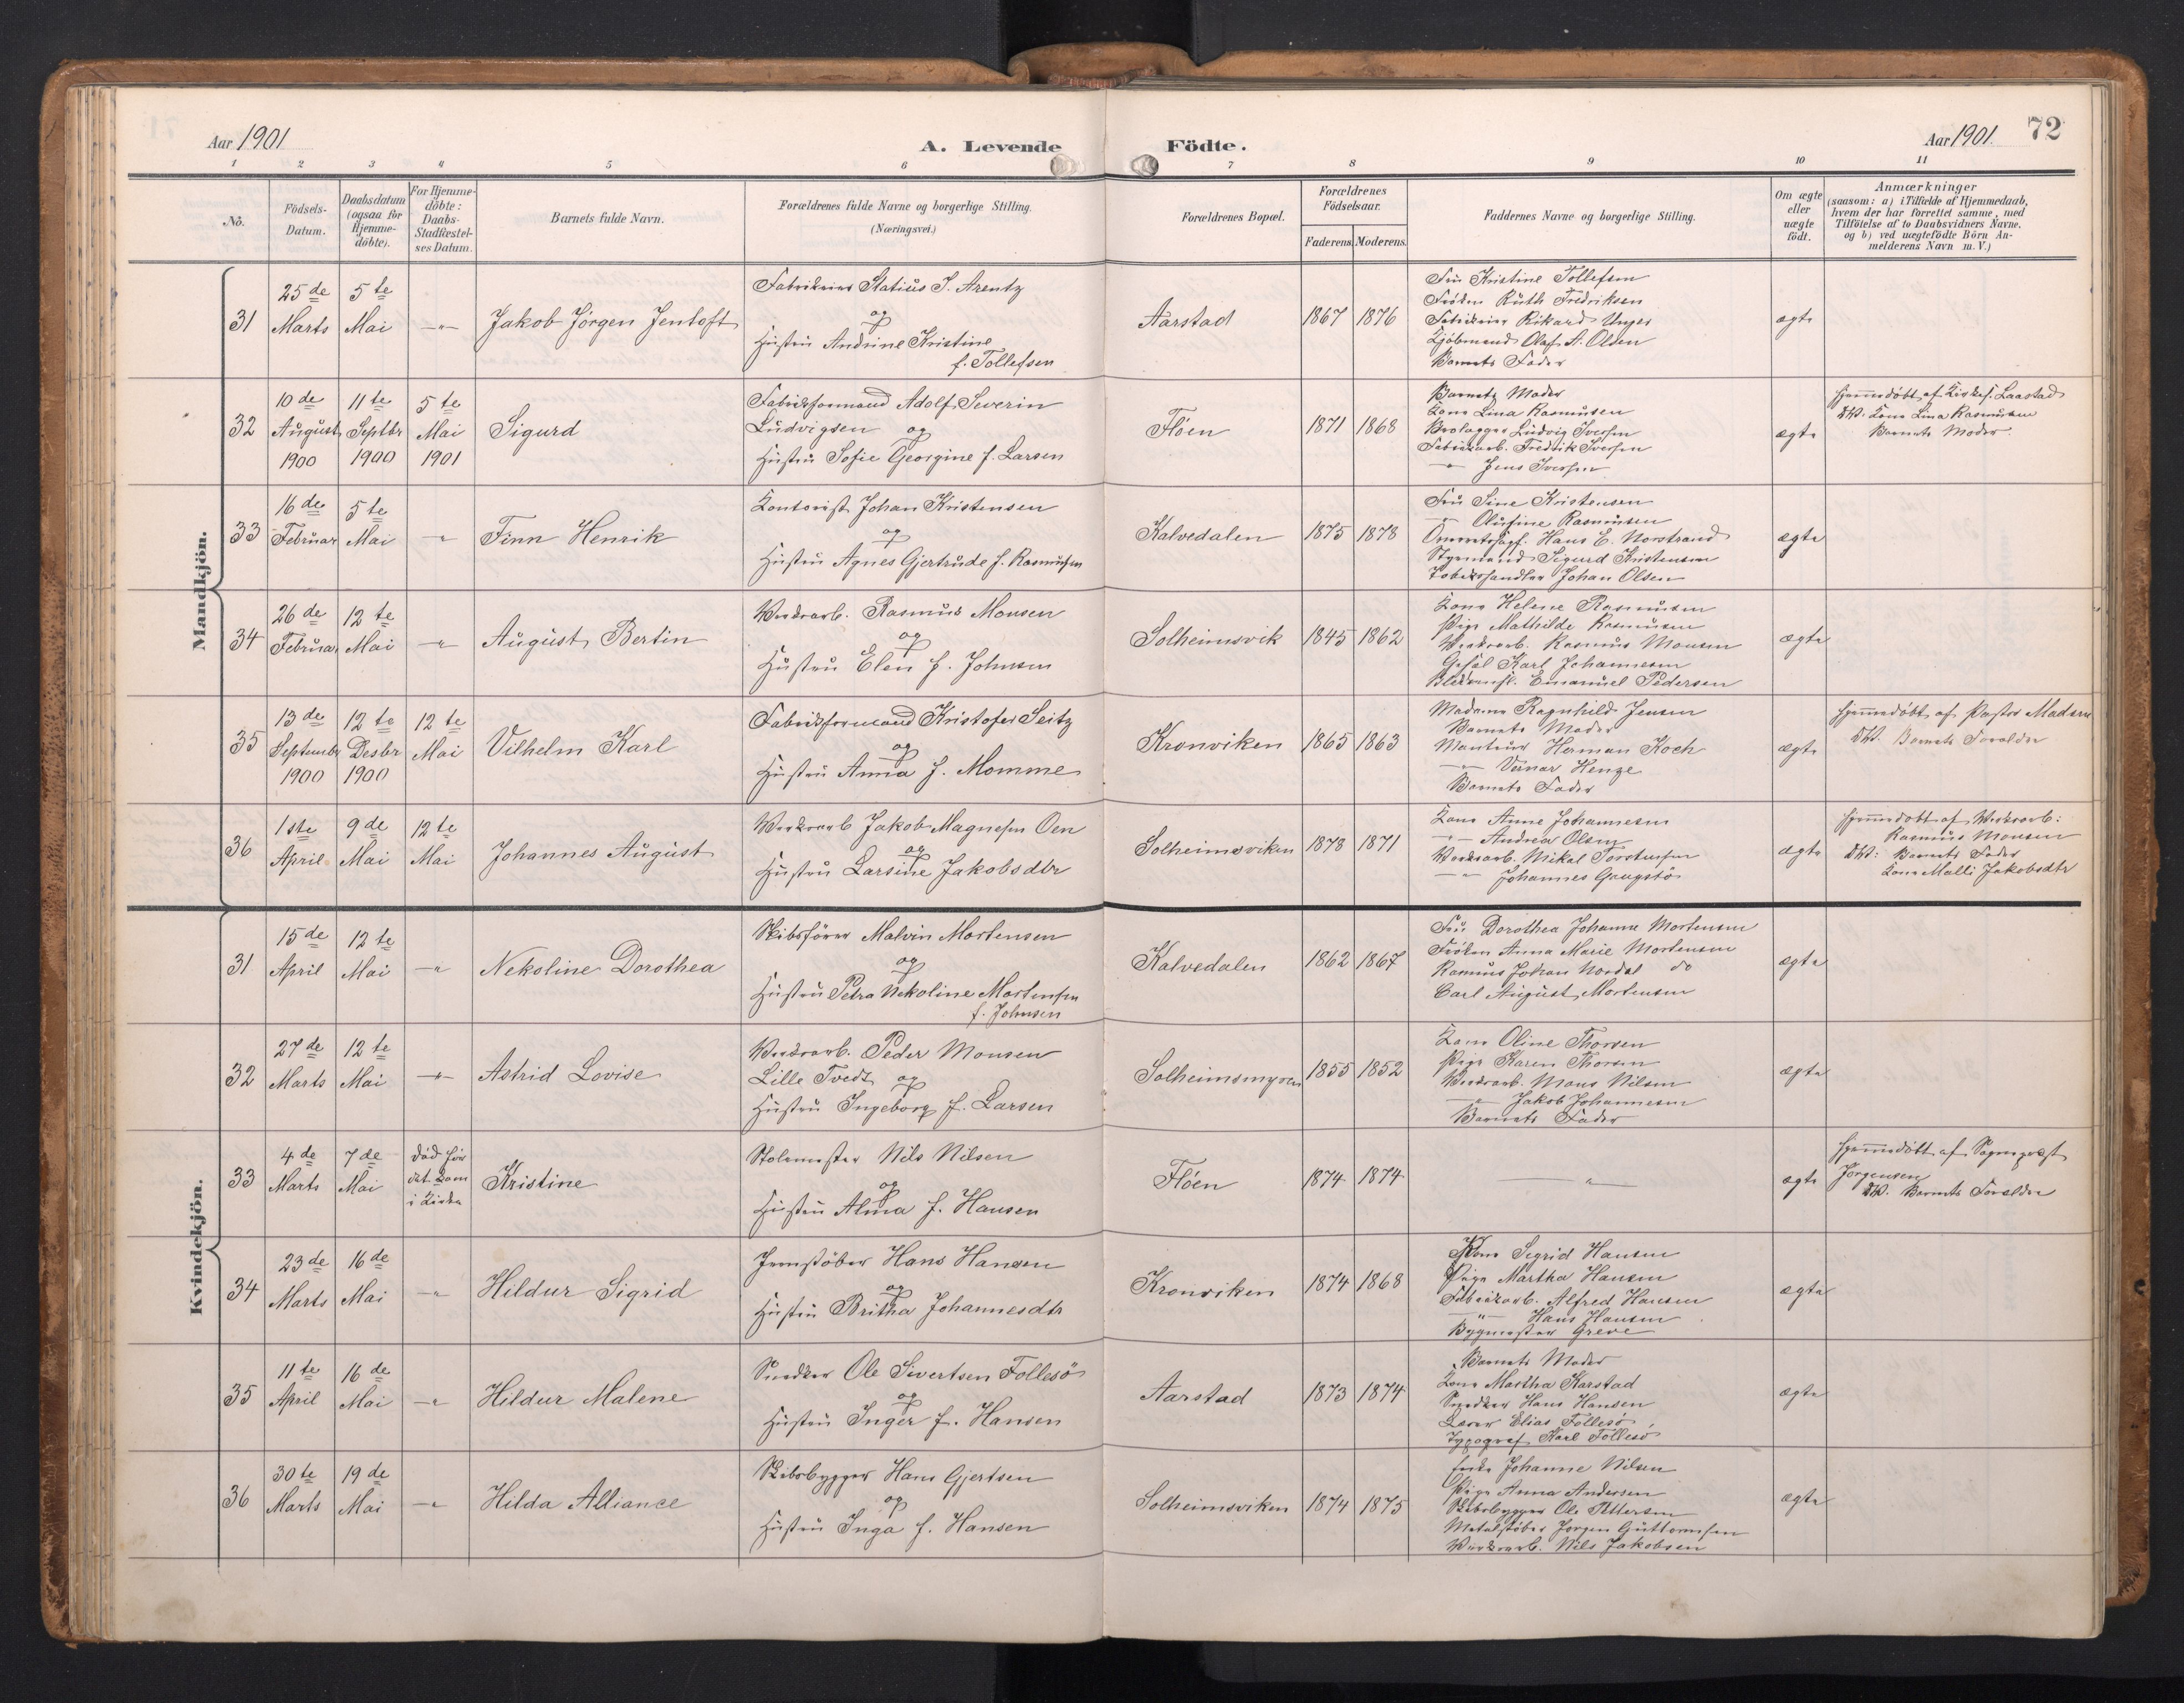 Aar 1901
A. Levende Födte.
Aar 1901. 72
1 2 3 4 5 6 7 8 9 10 11
No.
Födsels-Datum.
Daabsdatum (ogsaa för Hjemme-döbte).
For Hjemme-döbte: Daabs-Stadfæstel-ses Datum.
Barnets fulde Navn.
Forældrenes fulde Navne og borgerlige Stilling.
(Næringsvei.)
Forældrenes Bopæl.
Forældrenes Födselsaar.
Faderens. Moderens.
Faddernes Navne og borgerlige Stilling.
Om ægte eller uægte födt.
Anmærkninger
(saasom: a) i Tilfælde af Hjemmedaab, hvem der har forrettet samme, med Tilföielse af to Daabsvidners Navne, og b) ved uægtefödte Börn Anmelderens Navn m. V.)
Mandkjön.
31 25de Marts 5te Mai -"- Jakob Jörgen Jentoft
Statius J. Arentz
og
Hustru Andrine Kristine
f. Tollefsen
Aarstad 1867 1876
Fru Kristine Tollefsen
Fröken Ruth Fredriksen
Rikard Unger
Kjöbmand Olaf A. Olsen
Barnets Fader
ægte
32 10de August 1900 11te Septbr 1900 5te Mai 1901 Sigurd
Fabrikformand Adolf Severin
Ludvigsen og
Hustru Sofie Georgine f. Larsen
Flöen 1871 1868
Barnets Moder
Kone Lina Rasmussen
Brolægger Ludvig Iversen
Fabrikarb. Fredrik Iversen
-"- Jens Iversen
ægte
Hjemmedöbt af Laastad
DW: Kone Lina Rasmussen
Barnets Moder.
33 16de Februar 5te Mai -"- Finn Henrik
Kontorist Johan Kristensen
og
Hustru Agnes Gjertrude f. Rasmussen
Kalvedalen 1875 1878
Fru Sine Kristensen
-"- Olufine Rasmussen
Hans E. Norstrand
Styrmand Sigurd Kristensen
Tobakshandler Johan Olsen
ægte
34 26de Februar 12te Mai -"- August Bertin
Værksarb. Rasmus Monsen
og
Hustru Elen f. Johnsen
Solheimsvik 1845 1862
Kone Helene Rasmussen
Pige Mathilde Rasmussen
Værksarb. Rasmus Monsen
Karl Johannesen
Emanuel Pedersen
ægte
35 13de Septembr 1900 12te Desbr 1900 12te Mai Vilhelm Karl
Fabrikformand Kristofer Seitz
og
Hustru Anna f. Momme
Kronviken 1865 1863
Madame Ragnhild Jensen
Barnets Moder
Montör Herman Koch
-"- Vernar Henze
Barnets Fader
ægte
Hjemmedöbt af Pastor Madsen
DW. Barnets Forældre
36 1ste April 9de Mai 12te Mai Johannes August
Værksarb Jakob Magnesen Oen
og
Hustru Larsine Jakobsdtr
Solheimsviken 1878 1871
Kone Anne Johannesen
-"- Andrea Olsen
Værksarb. Mikal Torstensen
-"- Johannes Gaupstö
ægte
Hjemmedöbt af Værksarb:
Rasmus Monsen
DW: Barnets Fader
Kone Malli Jakobsdtr
Kvindekjön.
31 15de April 12te Mai -"- Nekoline Dorothea
Skibsförer Malvin Mortensen
og
Hustru Petra Nekoline Mortensen
f. Johnsen
Kalvedalen 1862 1867
Fru Dorothea Johanne Mortensen
Fröken Anna Marie Mortensen
Rasmus Johan Nordal do
Carl August Mortensen
ægte
32 27de Marts 12te Mai -"- Astrid Lovise
Værksarb. Peder Monsen
Lille Tvedt og
Hustru Ingeborg f. Larsen
Solheimsmyren 1855 1852
Kone Oline Thorsen
Pige Karen Thorsen
Værksarb. Mons Nilsen
-"- Jakob Johannesen
Barnets Fader
ægte
33 4de Marts 7de Mai död för det kom i Kirke Kristine
Stolemester Nils Nilsen
og
Hustru Alma f. Hansen
Flöen 1874 1874
-"-
ægte
Hjemmedöbt af Sogneprest
Jörgensen
DW. Barnets Forældre
34 23de Marts 16de Mai -"- Hildur Sigrid
Jernstöber Hans Hansen
og
Hustru Britha Johannesdtr
Kronviken 1874 1868
Kone Segrid Hansen
Pige Martha Hansen
Fabrikarb. Alfred Hansen
-"- Hans Hansen
Bygmester Greve
ægte
35 11te April 16de Mai -"- Hildur Malene
Snedker Ole Sivertsen Follesö
og
Hustru Inger f. Hansen
Aarstad 1873 1874
Barnets Moder
Kone Martha Karstad
Snedker Hans Hansen
Lærer Elias Follesö
Typograf Karl Follesö
ægte
36 30te Marts 19de Mai -"- Hilda Alliance
Skibsbygger Hans Gjertsen
og
Hustru Inga f. Hansen
Solheimsviken 1874 1875
Enke Johanne Nilsen
Pige Anna Andersen
Skibsbygger Ole Pettersen
Metalstöber Jörgen Guttormsen
Værksarb. Nils Jakobsen
ægte